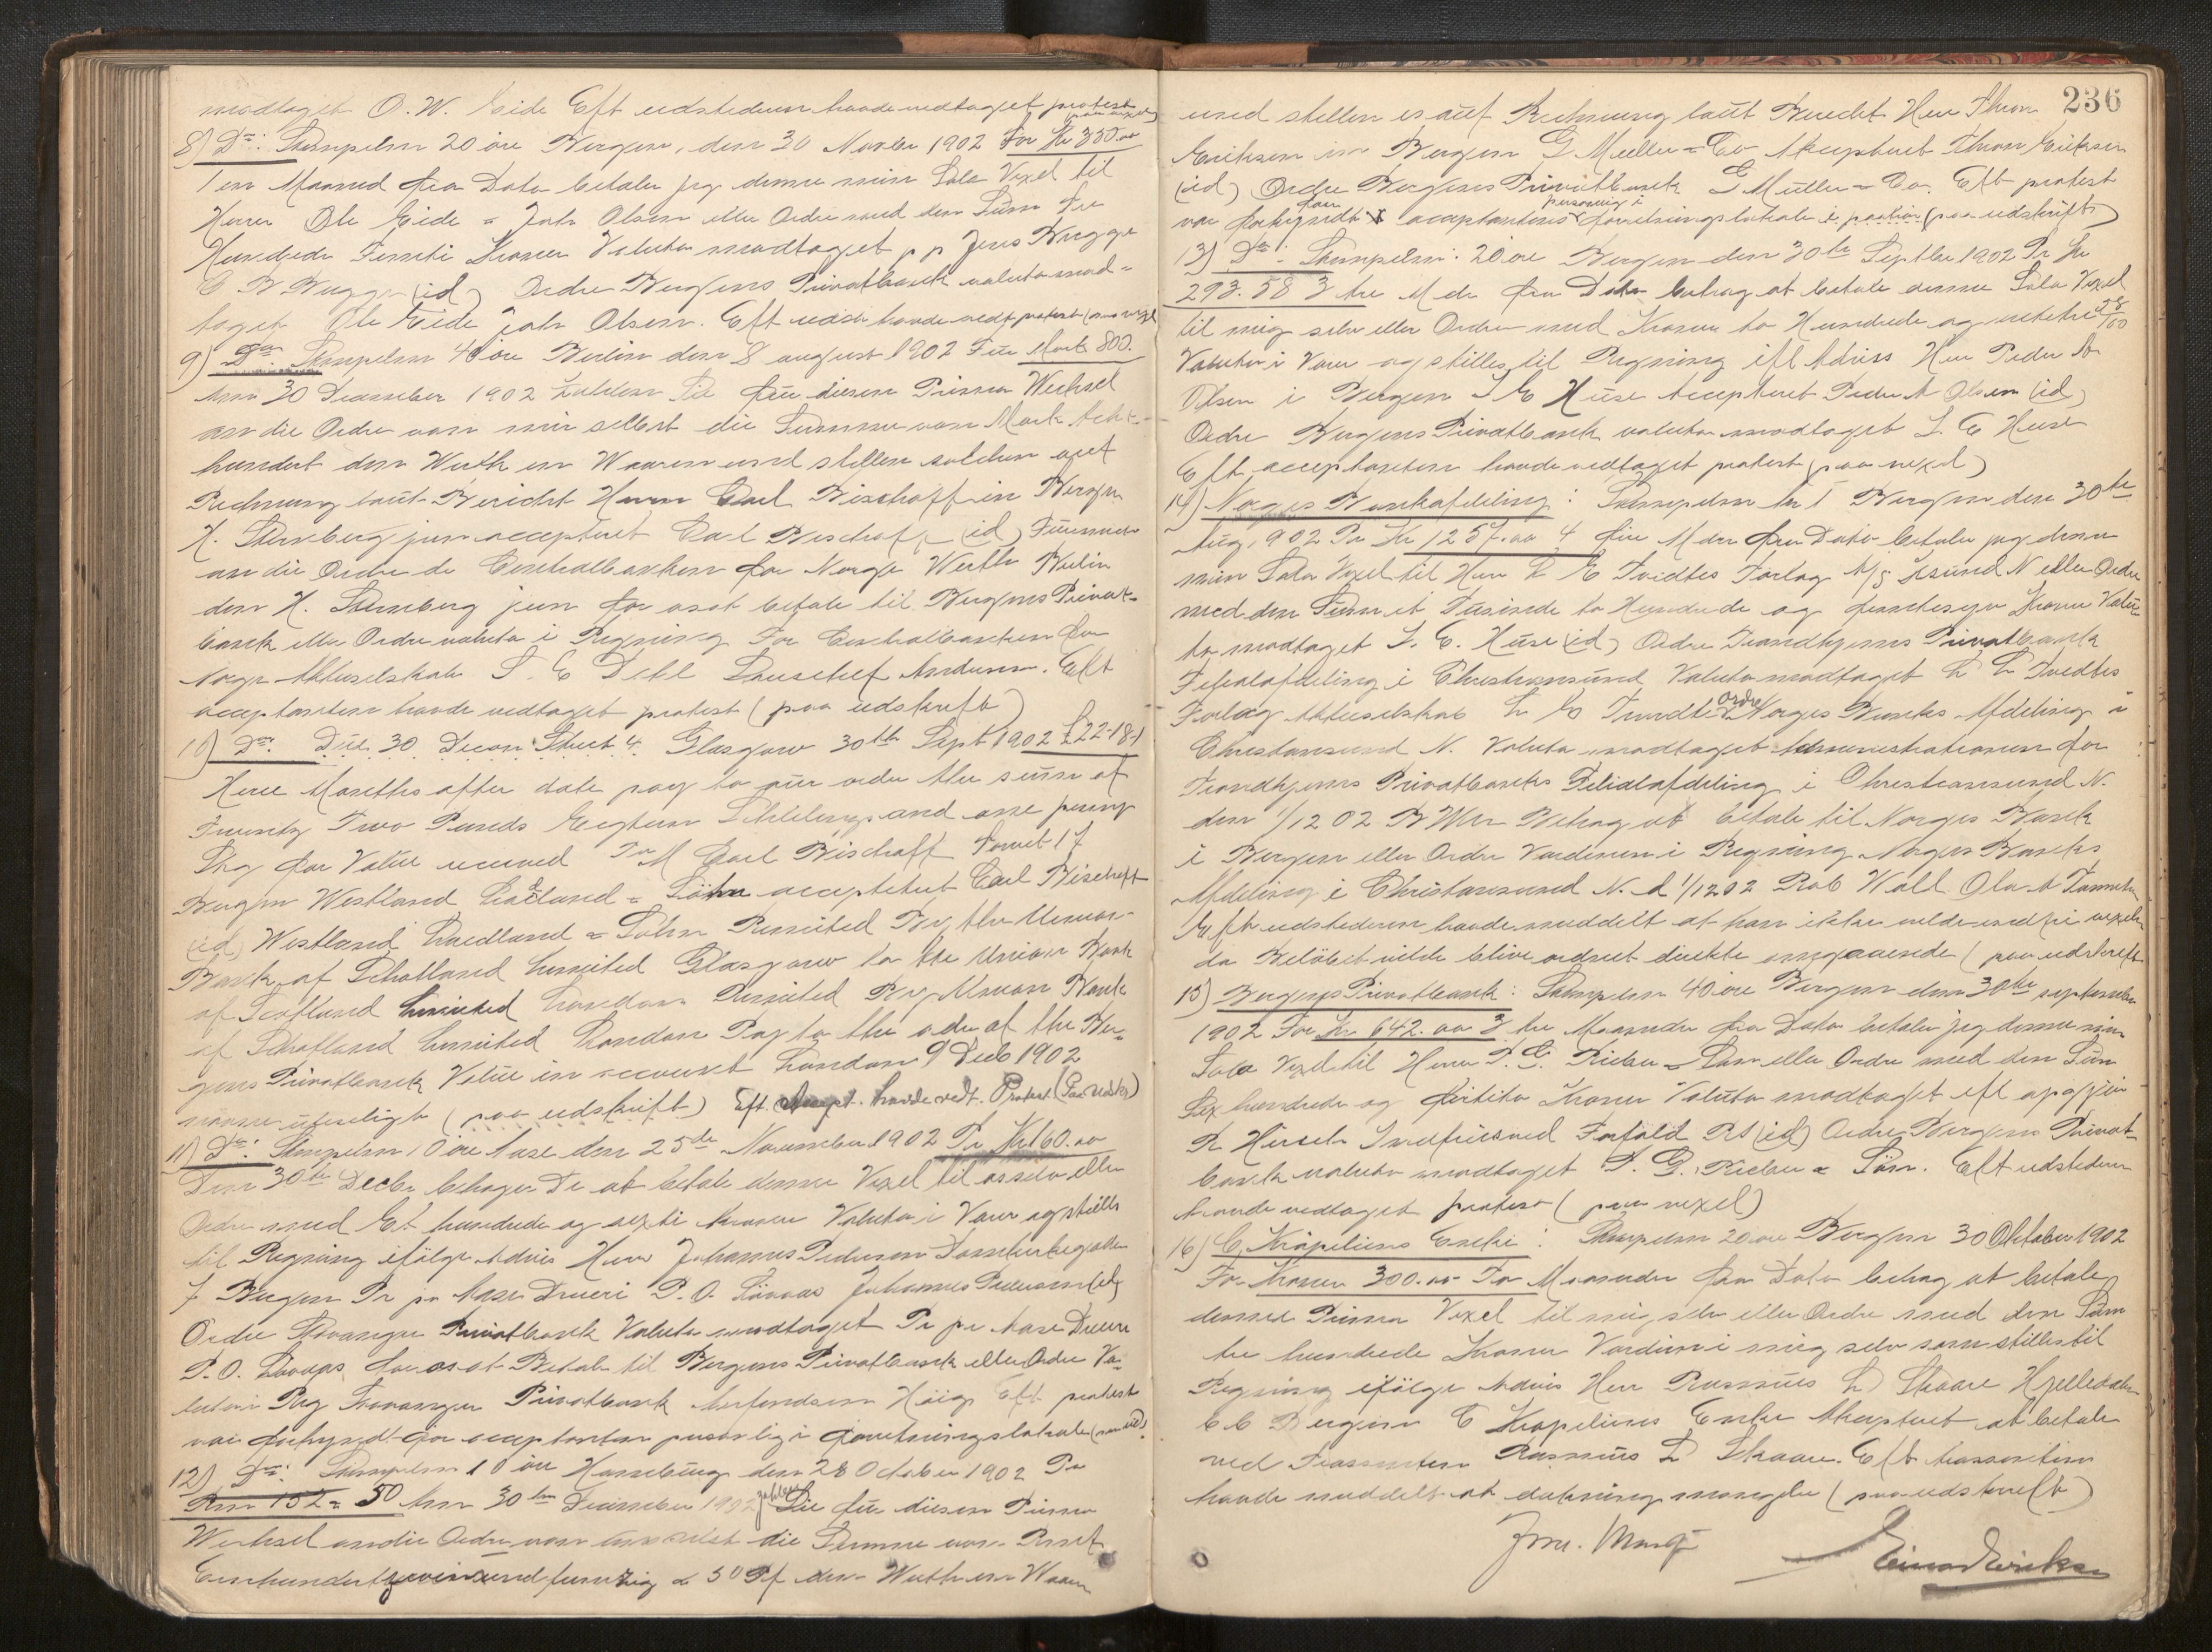 modtaget O. W. Eide Eft udstederen havde vedtaget protest
(paa vexel)
8) Do: Stempelm 20 öre Bergen, den 30 Novbr 1902 For Kr 350.00
1 en Maaned fra Dato betaler jeg denne min Sola Vexel til
Herrer Ole Eide = Joh Olsen eller Ordre med den Sum Tre
Hundrede Femti Kroner Valuta modtaget pp Jens Brygge
C B Brygge (id) Ordre Bergens Privatbank valuta mod-
taget Ole Eide Joh Olsen. Eft udst havde vedt protest (paa vexel
9) Do Stempelm 40 öre Berlin den 8 august 1902 Für Mark 800.
Am 30 December 1902 zahlen Sie für diesen Prima Wechsel
an die Ordre von mir selbst die Summe von Mark Acht-
hundert den Werth in Waaren und stellen solchen auf
Rechnung laut Bericht Herrn Carl Bischoff in Bergen
H. Sternberg jun acceptert Carl Bischoff (id) Für mich
an die Ordre de Centralbanken for Norge Werth Berlin
den H. Sternberg jun for osat betale til Bergens Privat-
bank eller Ordre valuta i Regning For Centralbanken for
Norge Aktieselskab S. E Dahl Andersen. Eft
acceptanten havde vedtaget protest (paa udskrift)
10) Do. Due 30 Decem Street 4. Glasgow 30th Sept 1902 £22-18-1
Three Months after date pay to our order the sum of
Twenty Two Punds Eegteen Schilling and one penny
Stg for Value received To M Carl Bischoff Torvet 17
Bergen Westland Laidland = Sohn accepteret Carl Bischoff
(id) Westland Laidland = Sohn Remited By the Union
Bank of Schotland Limited Glasgow to the Union Bank
of Scotland Limited London Remited By Union Bank
of Schotland Limited London Pay to the order of the Ber-
gens Privatbank Value in account London 9 Decb 1902
navne uleselige (paa udskrift) Eft. Accept. havde vedt. Protest. (Paa Udskr)
11) Do: Stempelm 10 öre Aase den 25de November 1902 Pr Kr 160.00
Den 30te Decbr behager De at betale denne Vexel til os selv eller
Ordre med Et hundrede og sexti Kroner Valuta i Varer og stilles
til Regning ifölge Advis Herr Johannes Pedersen
i Bergen Pr pr Aase Bruceri P. O. Johannes Pedersen (id)
Ordre Stavanger Privatbank Valuta modtaget Pr pr Aase
P. O. for os at Betale til Bergens Privatbank eller Ordre Va-
luta i Reg Stavanger Privatbank Höig Eft protest
var forkyndt for acceptanten personlig i forretningslokalet
12) Do: Stempelm 10 öre Hamburg den 28 October 1902 Pr
Rm 152 = 50 Am 30ten December 1902 zahlen Sie für diesen Prima
Wechsel an die Ordre von uns selbst die Summe von Rmk
Einhundertzweiundfunfzig & 50 Pf den Werth in Waaren
236
und stellen es auf Rechnung laut Bericht Herr Thron
Eriksen in Bergen G Muller = Co Akceptert Thron Eriksen
(id) Ordre Bergens Privatbank G Müller = Co. Eft protest
var forkyndt for acceptantens personlig i forretningslokale (paa udskrift)
13) Do: Stempelm: 20 öre Bergen den 30te Septbr 1902 Pr Kr
293.58 3 tre Mdr fra Dato behag at betale denne Sola Vexel
til mig selv eller Ordre med Kroner to Hundrede og nittitre 58/100
Valuta i Varer og stilles til Regning ifl Advis Herr Peder A
Olsen i Bergen L E Huse Accepteret Peder A Olsen (id)
Ordre Bergens Privatbank valuta modtaget L. E Huse
Eft acceptanten havde vedtaget protest (paa vexel)
14) Norges Bankafdeling: Stempelm kr 1 Bergen den 30te
Aug. 1902 Pr Kr 1257.00 4 fire Mdr fra Dato betaler jeg denne
min Sola Vexel til Herr L E Tvedtes Forlag A/S Xsund N eller Ordre
med den Sum et Tusinde to Hundrede og femtisyv Kroner Valu-
ta modtaget L. E. Huse (id) Ordre Trondhjems Privatbank
Filialafdeling i Christiansund Valuta modtaget L E Tvedtes
Forlag Aktieselskab L E Tvedte Ordre Norges Banks Afdeling i
Christiansund N. Valuta modtaget Administrationen for
Trondhjems Privatbanks Filialafdeling i Christiansund N.
den 1/12 02 Betrag at betale til Norges Bank
i Bergen eller Ordre Værdien i Regning Norges Banks
Afdeling i Christiansund N. d 1/12 02 Rob Wall Ola A
Eft udstederen havde meddelt at han ikke vilde indfri vexelen
da Belöbet vilde blive ordnet direkte omgaaende (paa udskrift
15) Bergens Privatbank: Stempelm 40 öre Bergen den 30te september
1902 For Kr 642.00 3 tre Maaneder fra Dato betaler jeg denne min
Sola Vexel til Herrer P. G. Rieber = Sön eller Ordre med den Sum
Sex hundrede og firtito Kroner Valuta modtaget efl opgjör
R Hirsch Indfries ved Forfald RS (id) Ordre Bergens Privat-
bank valuta modtaget P. G. Rieber = Sön. Eft udstederen
havde vedtaget protest (paa vexel)
16) C Krøpeliens Enke: Stempelm 20 öre Bergen 30 Oktober 1902
For Kroner 300.00 To Maaneder fra Dato behag at betale
denne Prima Vexel til mig selv eller Ordre med den Sum
tre hundrede Kroner Værdien i mig selv som stilles til
Regning ifölge Advis Herr Rasmus L Skaare
Bergen C Krøpeliens Enke Akceptert at betale
ved Trassenten Rasmus L Skaare. Eft trassenten
havde meddelt at dækning mangler (paa udskrift)
Einar Eriksen